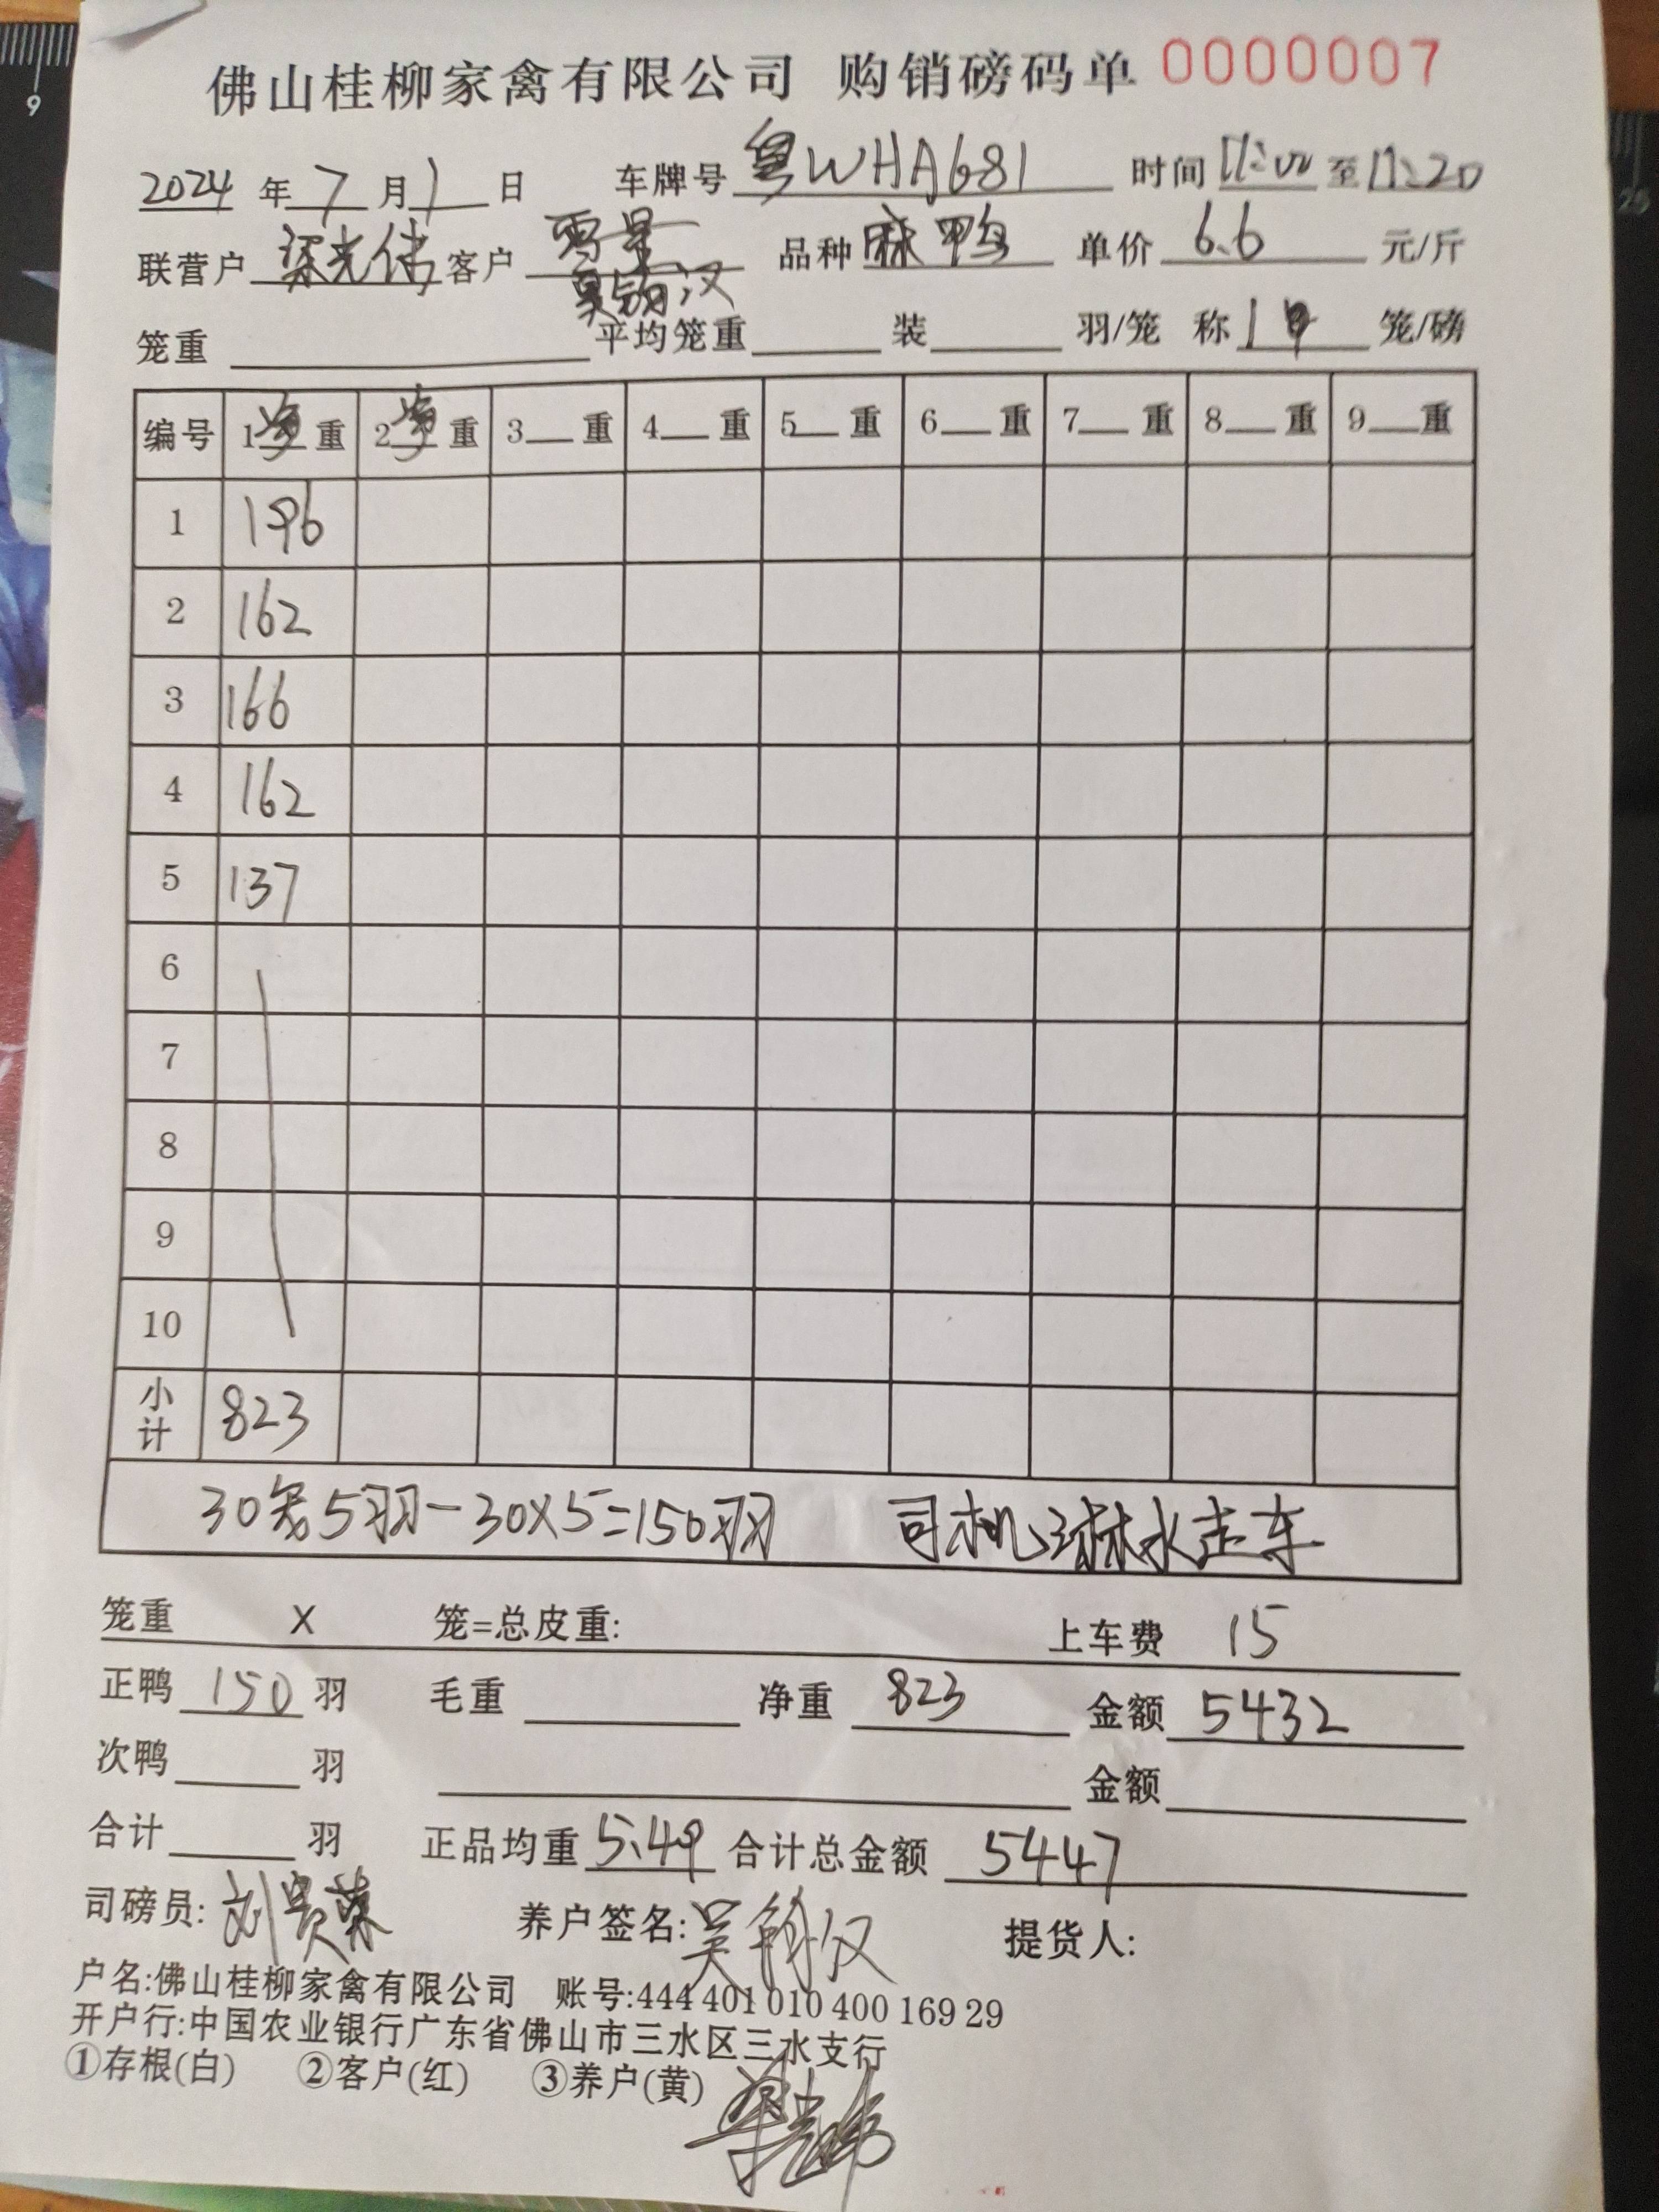 佛山桂柳家禽有限公司 购销磅码单 0000007
2024 年 7 月 1 日 车牌号 粤WHA681 时间 11:00 至 11:20
联营户 梁光伟 客户 品种 麻鸭 单价 6.6 元/斤
笼重 平均笼重 装 羽/笼 称 笼/磅
编号 1净重 2净重 3 重 4 重 5 重 6 重 7 重 8 重 9 重
1 196
2 162
3 166
4 162
5 137
6
7
8
9
10
小计 823
30笼5羽-30X5=150羽 司机淋水走车
笼重 X 笼=总皮重: 上车费 15
正鸭 150 羽 毛重 净重 823 金额 5432
次鸭 羽 金额
合计 羽 正品均重 5.49 合计总金额 5447
司磅员: 刘贵荣 养户签名: 提货人:
户名:佛山桂柳家禽有限公司 账号:444 401 010 400 169 29
开户行:中国农业银行广东省佛山市三水区三水支行
①存根(白) ②客户(红) ③养户(黄)